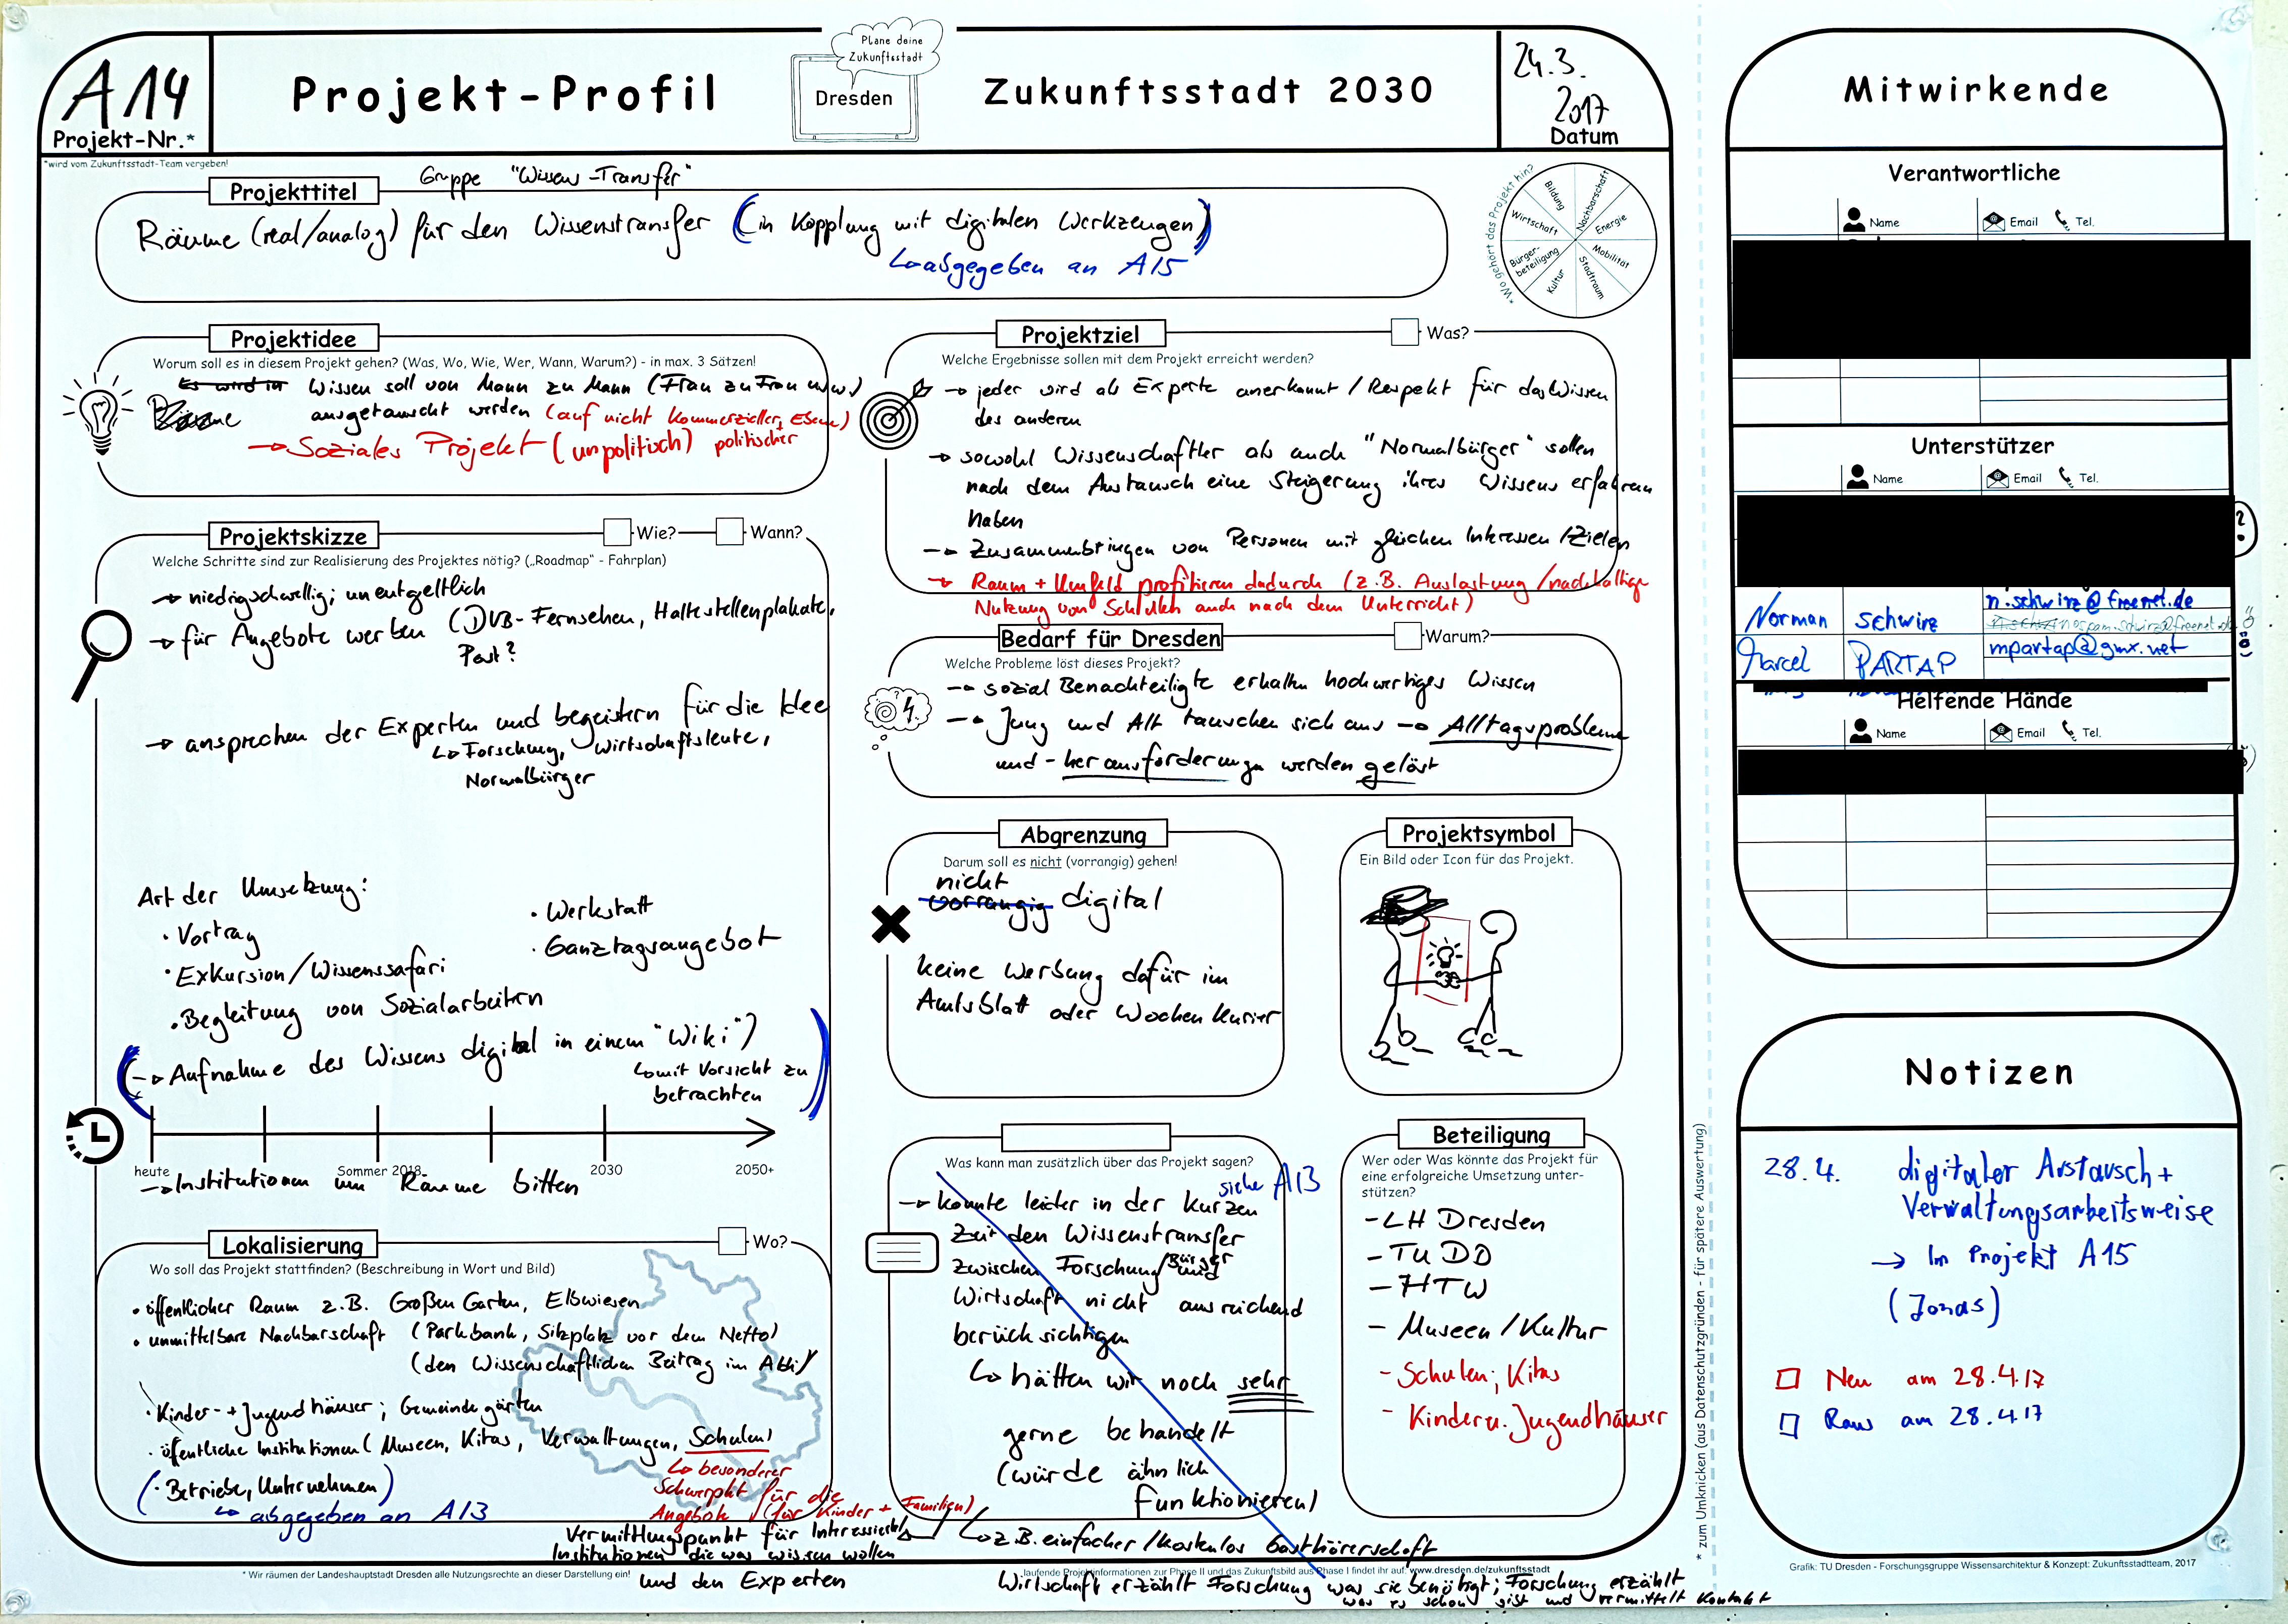 A14
Projekt-Nr.*
*wird vom Zukunftsstadt-Team vergeben!
Projekt-Profil
Plane deine
Zukunftsstadt
Dresden
Zukunftsstadt 2030
24.3.
2017
Datum
Gruppe "Wissens-Transfer"
Projekttitel
Räume (real/analog) für den Wissenstransfer (in Kopplung mit digitalen Werkzeugen)
↳ abgegeben an A15
*Wo gehört das Projekt hin?
Bildung
Nachbarschaft
Energie
Mobilität
Stadtraum
Kultur
Bürger-
beteiligung
Wirtschaft
Projektidee
Worum soll es in diesem Projekt gehen? (Was, Wo, Wie, Wer, Wann, Warum?) - in max. 3 Sätzen!
Es wird in Wissen soll von Mann zu Mann (Frau zu Frau usw.)
ausgetauscht werden (auf nicht kommerzieller, Ebene)
politischer
→ Soziales Projekt (unpolitisch)
Projektskizze
Wie?
Wann?
Welche Schritte sind zur Realisierung des Projektes nötig? („Roadmap“ - Fahrplan)
→ niedrigschwellig; unentgeltlich
→ für Angebote werben (DVB-Fernsehen, Haltestellenplakate,
Post?
→ ansprechen der Experten und begeistern für die Idee
↳ Forschung, Wirtschaftsleute,
Normalbürger
Art der Umsetzung:
· Vortrag
· Exkursion/Wissenssafari
· Begleitung von Sozialarbeiten
· Werkstatt
· Ganztagsangebot
(→ Aufnahme des Wissens digital in einem "Wiki")
↳ mit Vorsicht zu
betrachten
heute
Sommer 2018
2030
2050+
→ Institutionen um Räume bitten
Lokalisierung
Wo?
Wo soll das Projekt stattfinden? (Beschreibung in Wort und Bild)
· öffentlicher Raum z.B. Großen Garten, Elbwiesen
· unmittelbare Nachbarschaft (Parkbank, Sitzplatz vor dem Netto)
(den Wissenschaftlichen Beitrag im Aldi)
· Kinder- + Jugendhäuser; Gemeindegärten
· öffentliche Institutionen (Museen, Kitas, Verwaltungen, Schulen)
↳ besonderer
Schwerpkt für die
Angebote (für Kinder + Familien)
(· Betriebe, Unternehmen)
↳ abgegeben an A13
Vermittlungspunkt für Interessierte/
Institutionen die was wissen wollen
und den Experten
* Wir räumen der Landeshauptstadt Dresden alle Nutzungsrechte an dieser Darstellung ein!
Projektziel
Was?
Welche Ergebnisse sollen mit dem Projekt erreicht werden?
→ jeder wird als Experte anerkannt / Respekt für das Wissen
des anderen
→ sowohl Wissenschaftler als auch "Normalbürger" sollen
nach dem Austausch eine Steigerung ihres Wissens erfahren
haben
→ Zusammenbringen von Personen mit gleichen Interessen / Zielen
→ Raum + Umfeld profitieren dadurch (z.B. Auslastung / nachhaltige
Nutzung von Schulen auch nach dem Unterricht)
Bedarf für Dresden
Warum?
Welche Probleme löst dieses Projekt?
→ sozial Benachteiligte erhalten hochwertiges Wissen
→ Jung und Alt tauschen sich aus → Alltagsprobleme
und -herausforderungen werden gelöst
Abgrenzung
Darum soll es nicht (vorrangig) gehen!
nicht
vorrangig digital
keine Werbung dafür im
Amtsblatt oder Wochenkurier
Projektsymbol
Ein Bild oder Icon für das Projekt.
Was kann man zusätzlich über das Projekt sagen?
siehe A13
→ konnte leider in der kurzen
Zeit den Wissenstransfer
zwischen Forschung/Bürger und
Wirtschaft nicht ausreichend
berücksichtigen
↳ hätten wir noch sehr
gerne behandelt
(würde ähnlich
funktionieren)
↳ z.B. einfacher / kostenlos Gasthörerschaft
laufende Projektinformationen zur Phase II und das Zukunftsbild aus Phase I findet ihr auf: www.dresden.de/zukunftsstadt
Wirtschaft erzählt Forschung was sie benötigt; Forschung erzählt
was es schon gibt und vermittelt Kontakt
Beteiligung
Wer oder Was könnte das Projekt für
eine erfolgreiche Umsetzung unter-
stützen?
- LH Dresden
- TU DD
- HTW
- Museen / Kultur
- Schulen; Kitas
- Kinder u. Jugendhäuser
* zum Umknicken (aus Datenschutzgründen - für spätere Auswertung)
Mitwirkende
Verantwortliche
Name
Email
Tel.
Unterstützer
Name
Email
Tel.
?
Norman Schwirz n.schwirz@freenet.de
Marcel PARTAP mpartap@gmx.net
Helfende Hände
Name
Email
Tel.
Notizen
28.4. digitaler Austausch +
Verwaltungsarbeitsweise
→ In Projekt A15
(Jonas)
Neu am 28.4.17
Raus am 28.4.17
Grafik: TU Dresden - Forschungsgruppe Wissensarchitektur & Konzept: Zukunftsstadtteam, 2017